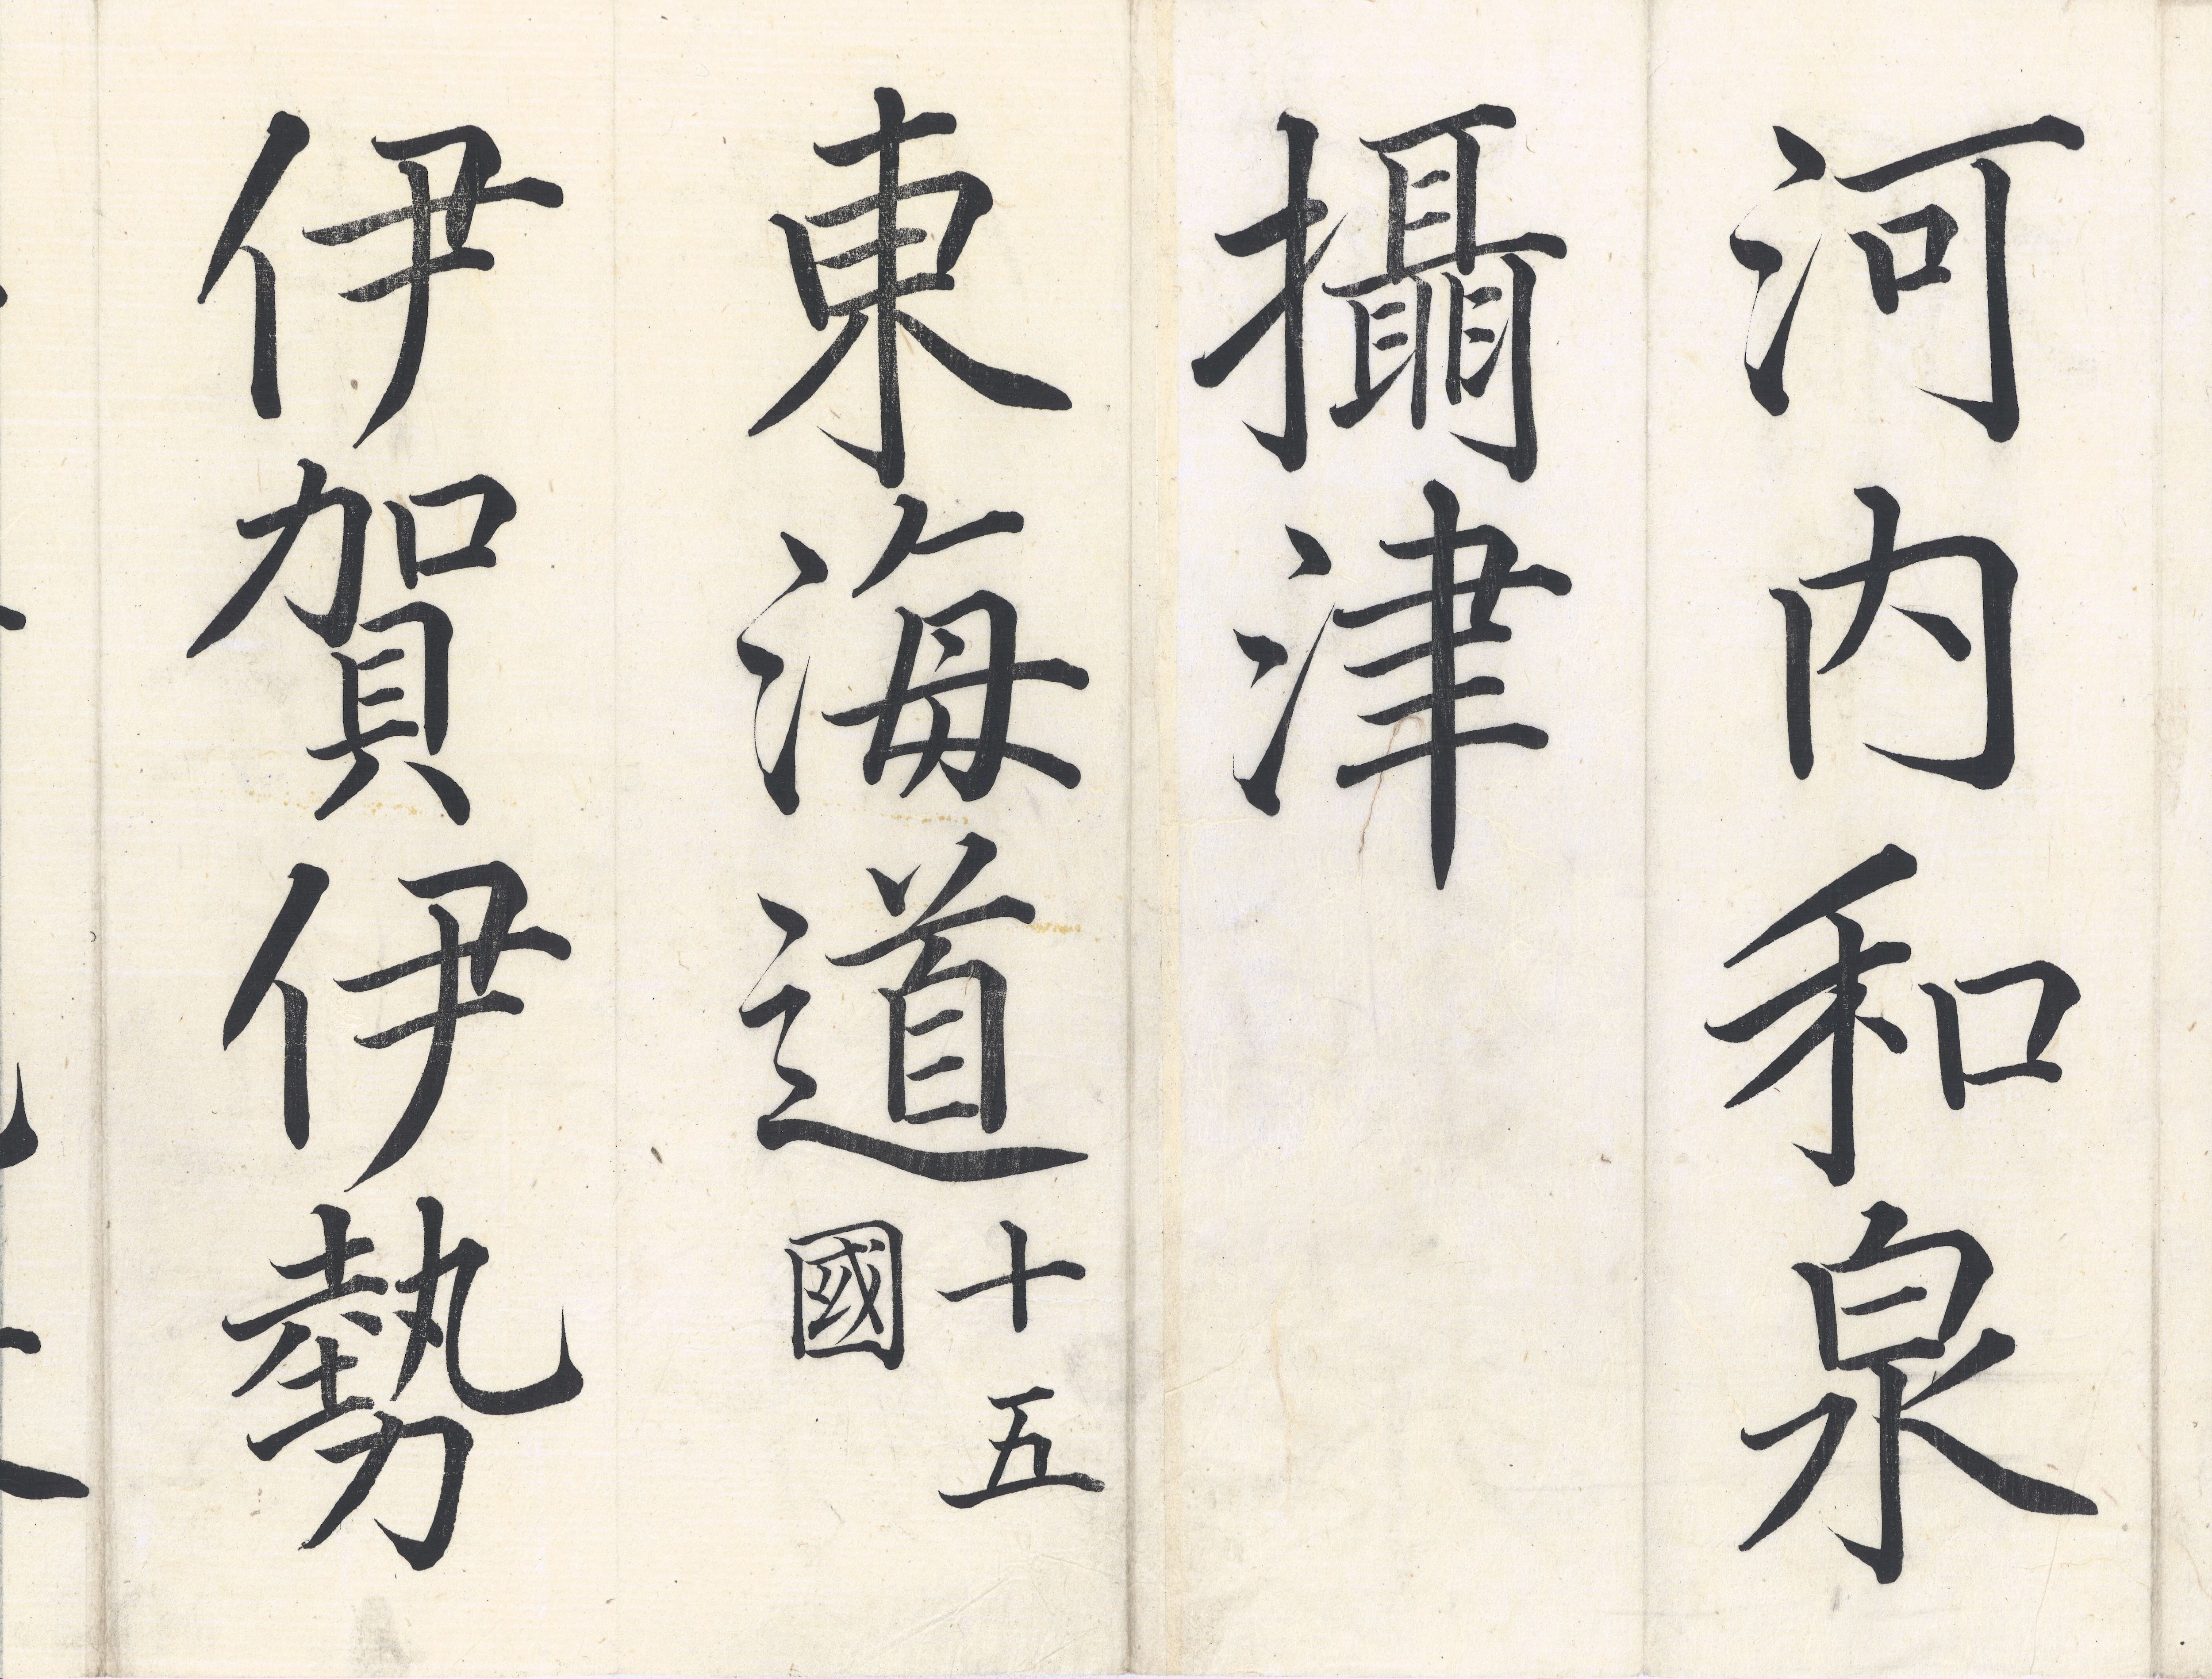 河内和泉
攝津
東海道十五國
伊賀伊勢